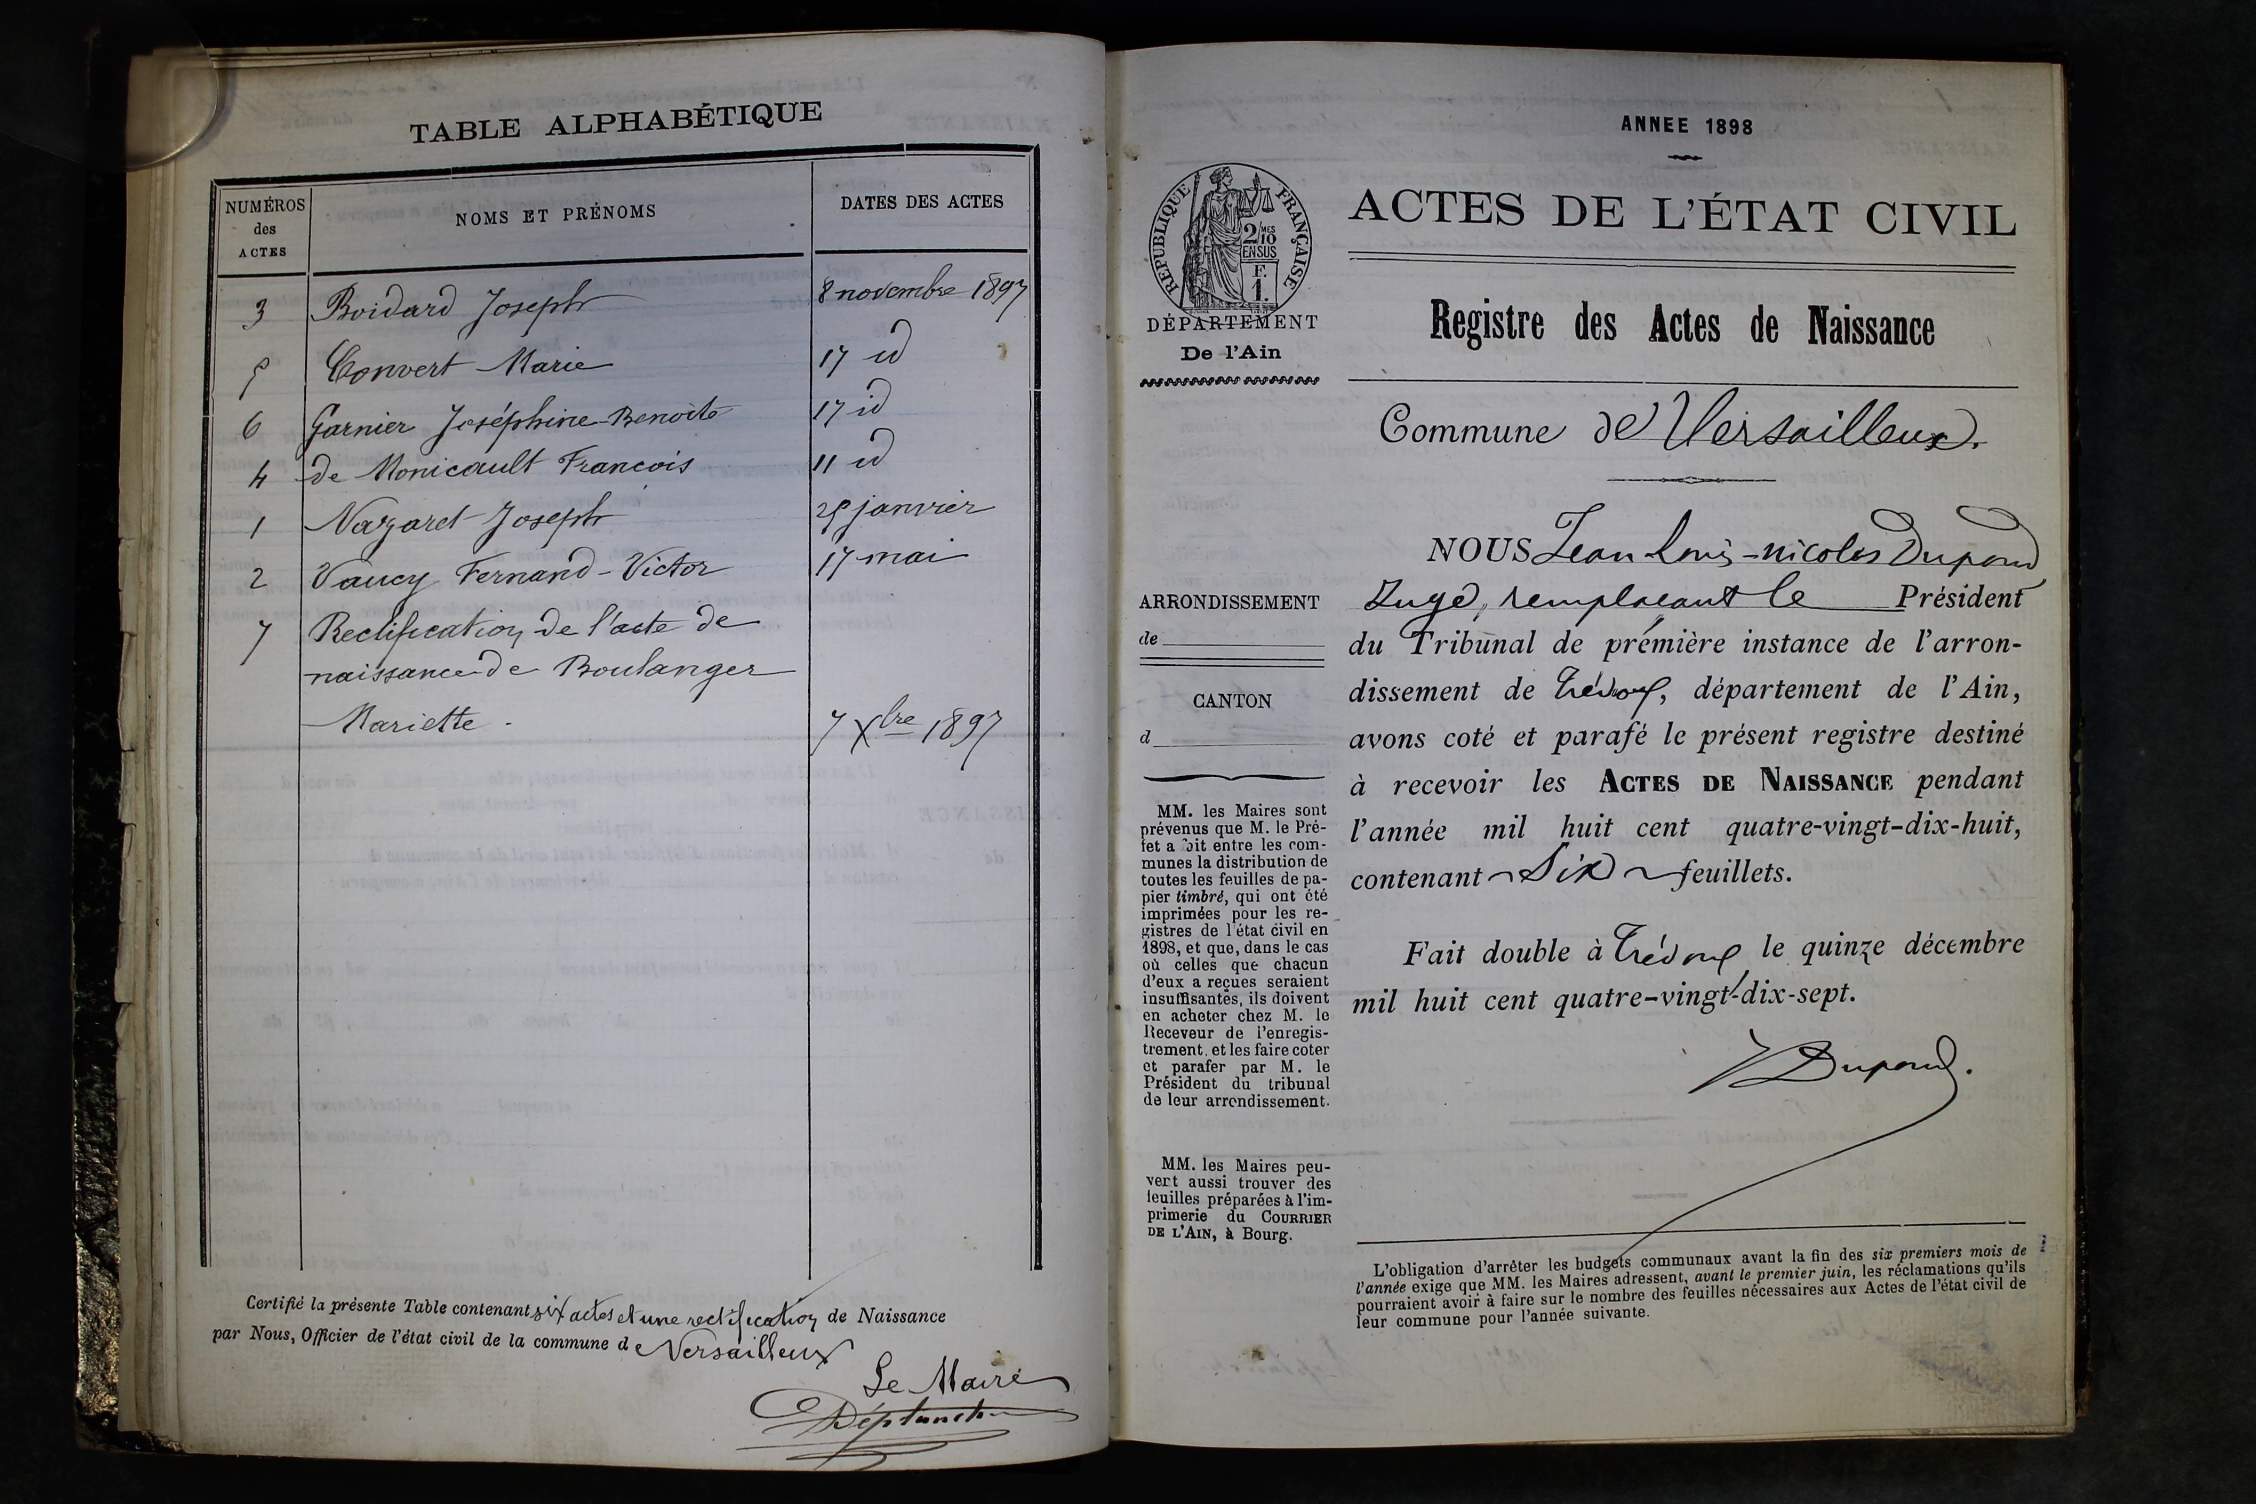 TABLE ALPHABÉTIQUE
NUMÉROS des ACTES NOMS ET PRÉNOMS DATES DES ACTES
3 Boidard Joseph 8 novembre 1897
5 Convert Marie 17 id
6 Garnier Joséphine-Benoîte 17 id
4 de Monicault Francois 11 id
1 Nazaret Joseph 25 janvier
2 Vaucy Fernand-Victor 17 mai
7 Rectification de l'acte de
naissance de Boulanger
Mariette. 7 Xbre 1897
Certifié la présente Table contenant six actes et une rectification de Naissance
par Nous, Officier de l'état civil de la commune de Versailleux
Le Maire
Déplanche
ANNEE 1898
RÉPUBLIQUE FRANÇAISE
2/10 MES
EN SUS
F.
1.
DÉPARTEMENT
De l'Ain
ACTES DE L'ÉTAT CIVIL
Registre des Actes de Naissance
Commune de Versailleux.
ARRONDISSEMENT
de
CANTON
d
MM. les Maires sont
prévenus que M. le Pré-
fet a fait entre les com-
munes la distribution de
toutes les feuilles de pa-
pier timbré, qui ont été
imprimées pour les re-
gistres de l'état civil en
1898, et que, dans le cas
où celles que chacun
d'eux a reçues seraient
insuffisantes, ils doivent
en acheter chez M. le
Receveur de l'enregis-
trement, et les faire coter
et parafer par M. le
Président du tribunal
de leur arrondissement.
MM. les Maires peu-
vent aussi trouver des
feuilles préparées à l'im-
primerie du COURRIER
DE L'AIN, à Bourg.
NOUS Jean Louis-nicolas Dupond
Juge, remplacant le Président
du Tribunal de prémière instance de l'arron-
dissement de Trévoux, département de l'Ain,
avons coté et parafé le présent registre destiné
à recevoir les ACTES DE NAISSANCE pendant
l'année mil huit cent quatre-vingt-dix-huit,
contenant Six feuillets.
Fait double à Trévoux le quinze décembre
mil huit cent quatre-vingt-dix-sept.
Dupond.
L'obligation d'arrêter les budgets communaux avant la fin des six premiers mois de
l'année exige que MM. les Maires adressent, avant le premier juin, les réclamations qu'ils
pourraient avoir à faire sur le nombre des feuilles nécessaires aux Actes de l'état civil de
leur commune pour l'année suivante.